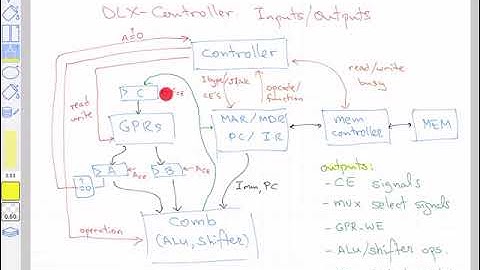 DLX-Controller Inputs/Outputs
?
A=0
controller
Itype/slxx
CE's
opcode/
function
read/write
busy
C
CE
read
write
GPRs
MAR/MDR
PC/IR
mem
controller
MEM
A
ACE
B
ACE
?
=0
Imm, PC
operation
comb
(ALU, shifter)
outputs:
- CE signals
- mux select signals
- GPR-WE
- ALU/shifter ops.
0.50